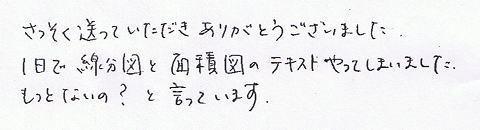 さっそく送っていただきありがとうございました.
1日で線分図と面積図のテキストやってしまいました.
もっとないの？と言っています.